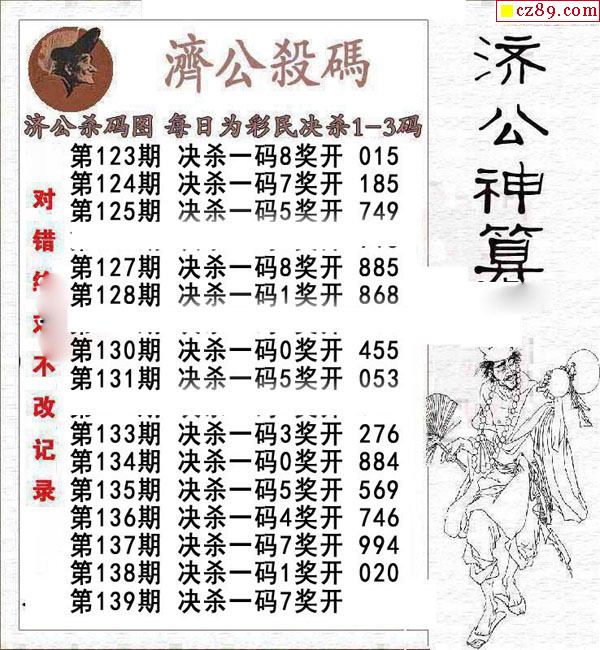 cz89.com
濟公殺碼
济公杀码图 每日为彩民决杀1-3码
第123期 决杀一码8奖开 015
第124期 决杀一码7奖开 185
第125期 决杀一码5奖开 749
第127期 决杀一码8奖开 885
第128期 决杀一码1奖开 868
第130期 决杀一码0奖开 455
第131期 决杀一码5奖开 053
第133期 决杀一码3奖开 276
第134期 决杀一码0奖开 884
第135期 决杀一码5奖开 569
第136期 决杀一码4奖开 746
第137期 决杀一码7奖开 994
第138期 决杀一码1奖开 020
第139期 决杀一码7奖开
对错
不改记录
济公神算